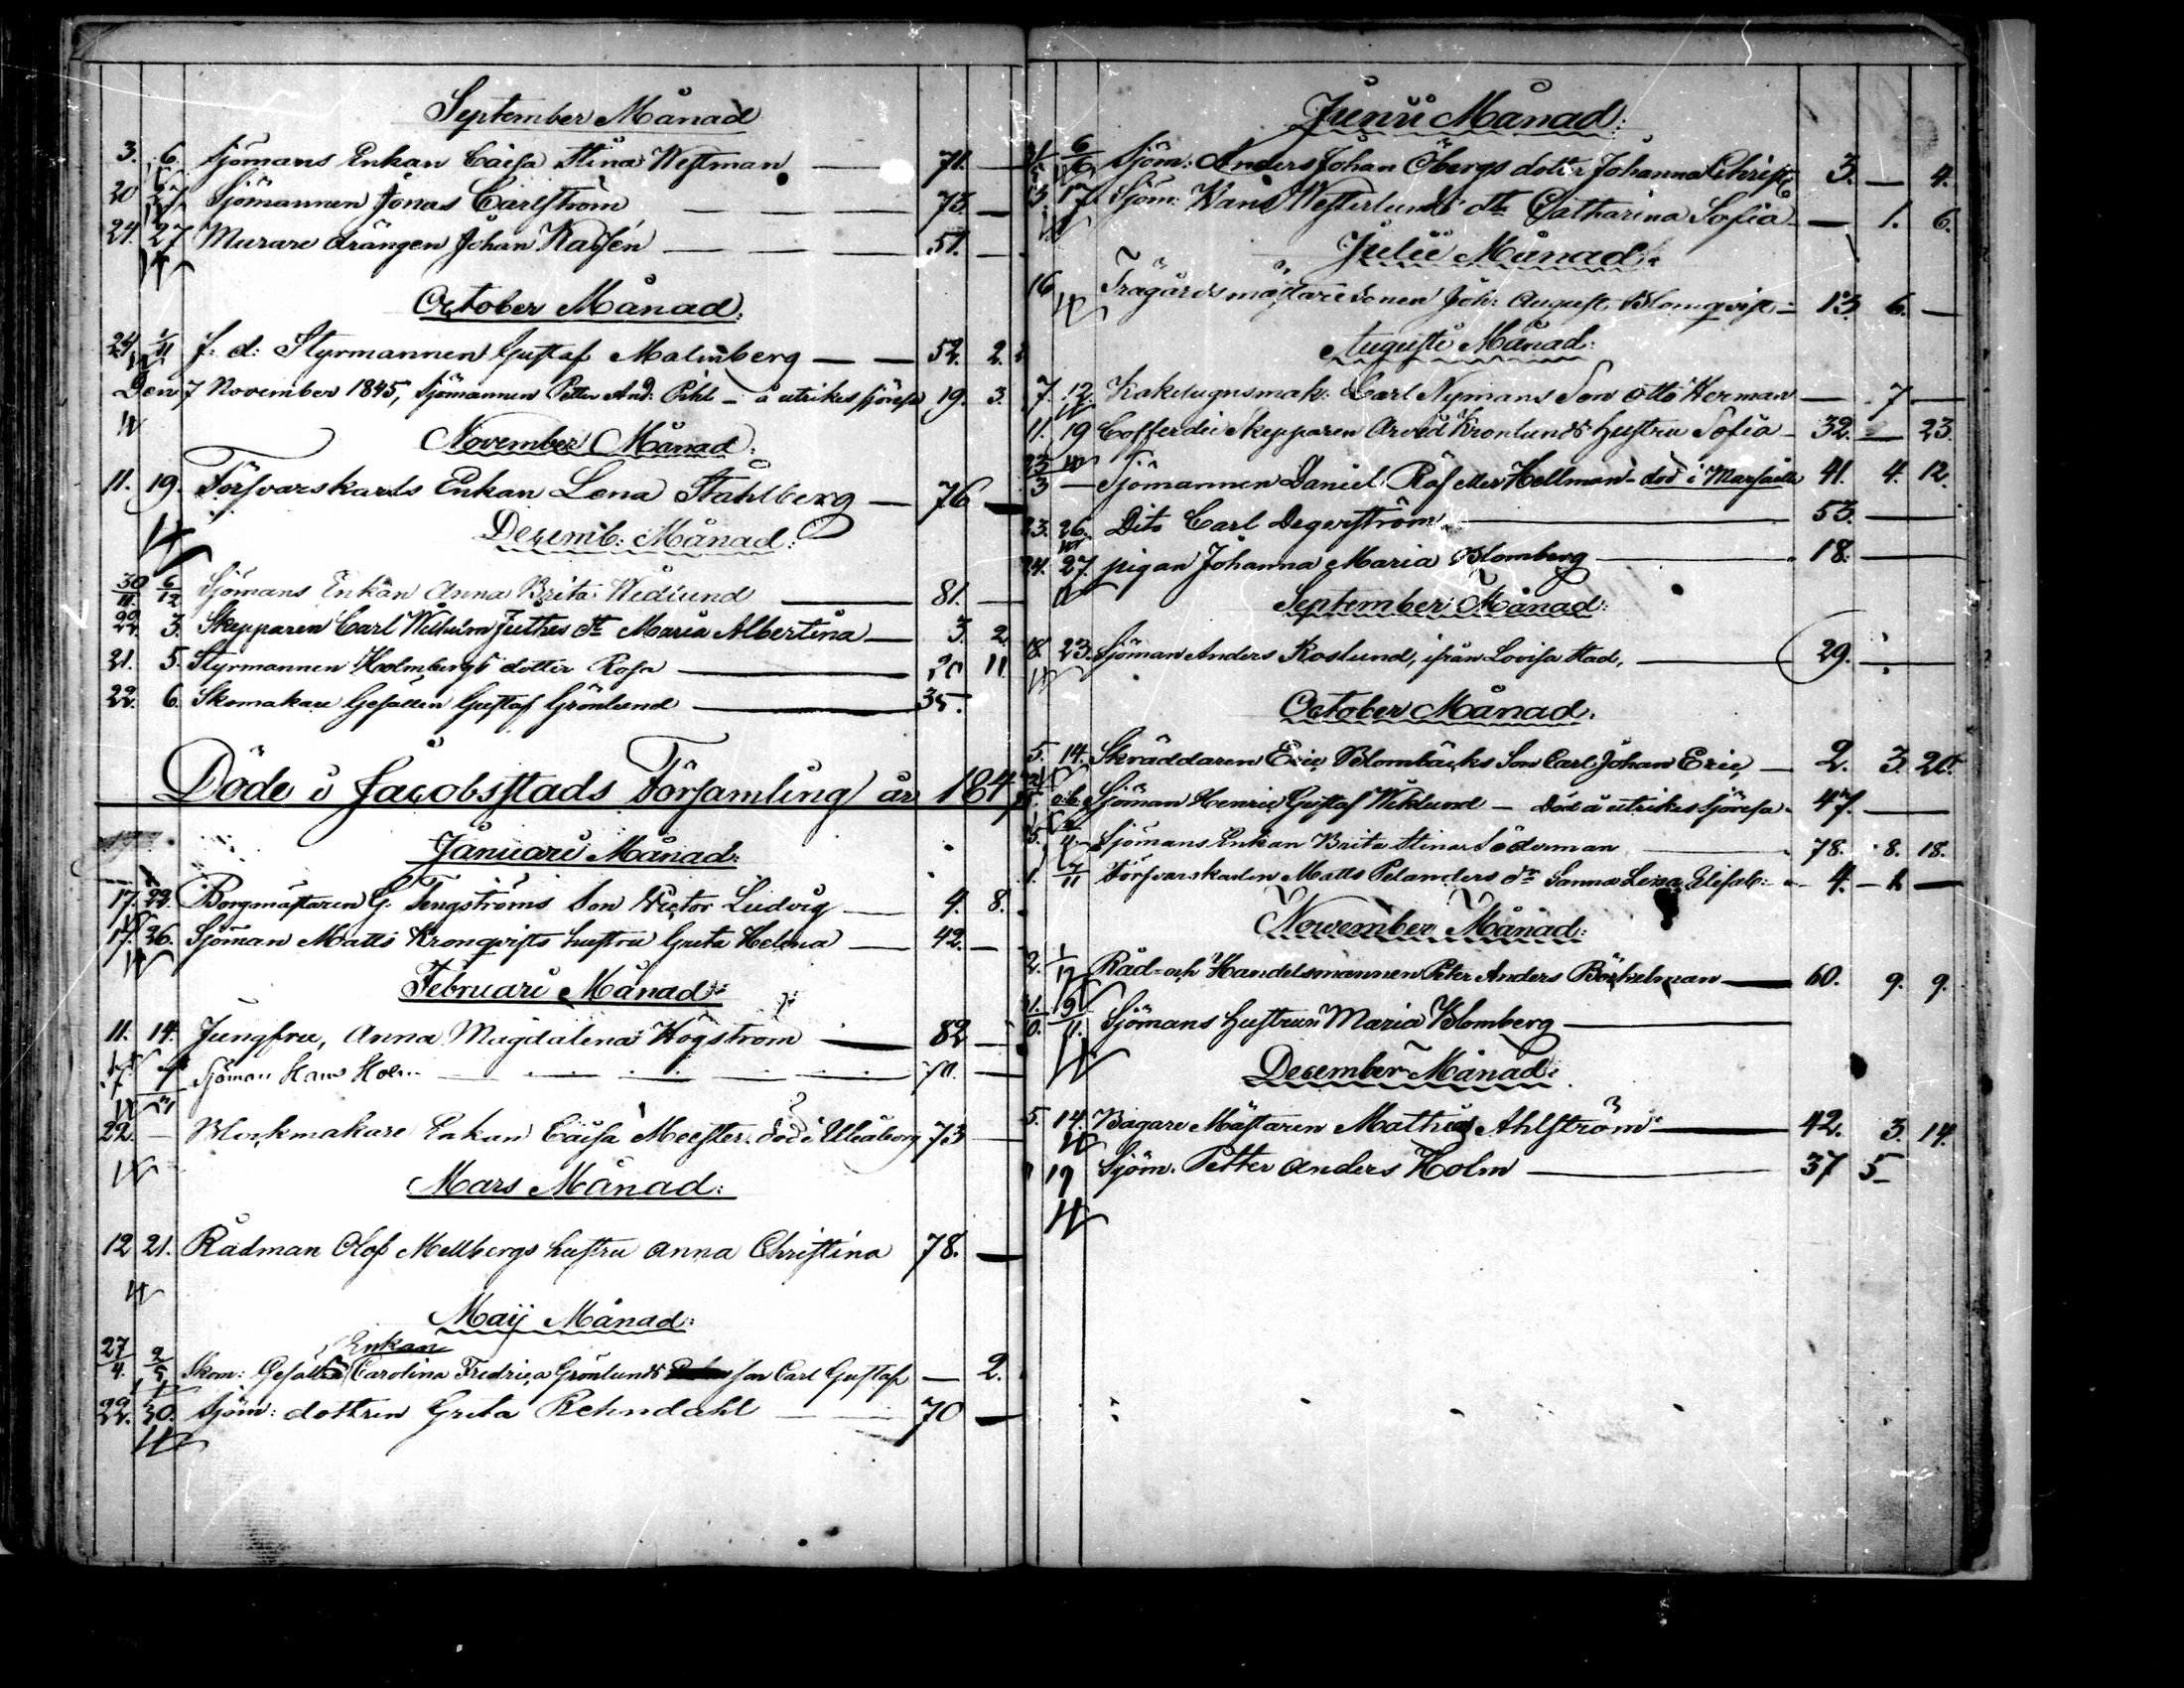 September Månad
3. 6. Sjömans Enkan Caisa Stina Westman — 71. —
20 27 Sjömannen Jonas Carlström — — — 73. —
24. 27 Murare drängen Johan Kaisén — — — 51. —
October Månad.
24 1/11 f: d: Styrmannen Gustaf Malmberg — — 52. 2.
Den 7 November 1845, Sjömannen Petter And: Pihl — å utrikes sjöresa 19. 3.
November Månad:
11. 19. Försvarskarls Enkan Lena Ståhlberg — 76 —
Decemb: Månad:
30/11. 6/12 Sjömans Enkan Anna Brita Wedlund — 81. —
22. 3. Skepparen Carl Wilhelm Juthes dtr Maria Albertina — 3. 2
21. 5. Styrmannen Holmbergs dotter Rosa — 11
22. 6. Skomakare Gesällen Gustaf Grönlund — 35.
Döde i Jacobsstads Församling år 184
Januari Månad:
17. 22. Borgmästaren G. Tengströms Son Victor Ludvig — 4. 8.
17. 26. Sjöman Matts Kronqvists hustru Greta Helena — 42. —
Februari Månad:
11. 14. Jungfru, Anna Magdalena Högström — 82 —
Sjöman Hans Holm — 70. —
22. — Blockmakare Enkan Caisa Meester. död i Uleåborg 73 —
Mars Månad:
12 21. Rådman Olof Mellbergs hustru Anna Christina 78. —
Maij Månad:
Enkan
27/4. 2/5 Skom: Gesälls Carolina Fredrica Grönlunds son Carl Gustaf — 2.
22. 30. Sjöm: dottren Greta Rehndahl — — 70 —
Junii Månad:
6/6 Sjöm: Anders Johan Öbergs dotter Johanna Christ. 3. — 4.
13 17. Sjöm: Hans Westerlunds dtr Catharina Sofia — — 1. 6.
Julii Månad:
16 Trägårdsmästaresonen Joh: August Blomqvist — 13. 6. —
Augusti Månad:
7. 12. Kakelugnsmak: Carl Nymans Son Otto Herman — 7 —
11. 19 Cofferdie Skepparen Arvid Kronlunds hustru Sofia — 32. — 23.
23/3 — Sjömannen Daniel Räf eller Hellman — död i Marseille 41. 4. 12.
23. 26. Dito Carl Degerström — 53. —
24. 27. pigan Johanna Maria Blomberg — 18. —
September Månad:
18 23. Sjöman Anders Roslund, ifrån Lovisa Stad, — 29. —
October Månad.
5. 14. Skräddaren Eric Blombäcks Son Carl Johan Eric, — 2. 3. 20.
Sjöman Henric Gustaf Wiklund — Död å utrikes Sjöresa. 47. —
5. 4. Sjömans Enkan Brita Stina Söderman — 78. 8. 18.
1. /11 Försvarskarlen Matts Pelanders dtr Sanna Lisa Elisab: — 4. — 1. —
November Månad:
2. Råd- och Handelsmannen Peter Anders Börkelman — 60. 9. 9.
9/11. Sjömans hustrun Maria Blomberg —
December Månad:
5. 14. Bagare Mästaren Mathias Ahlström — 42. 3. 14.
19 Sjöm. Petter Anders Holm — 37 5 —